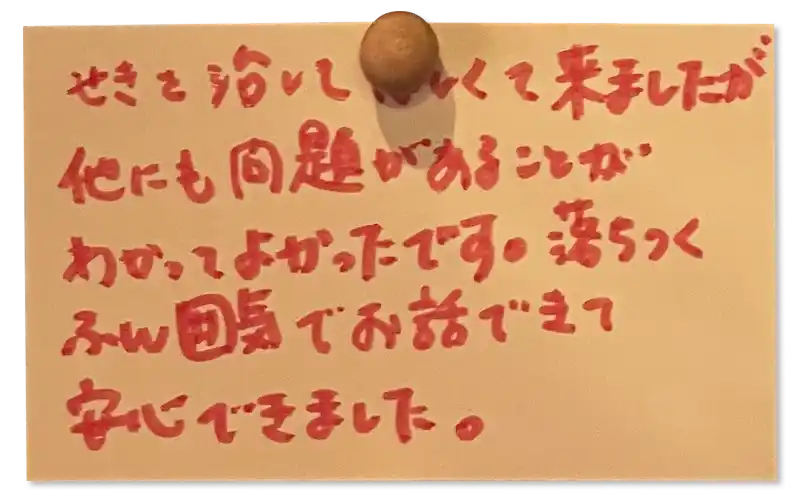 せきを治して しくて来ましたが
他にも問題があることが
わかってよかったです。落ちつく
ふん囲気でお話できて
安心できました。